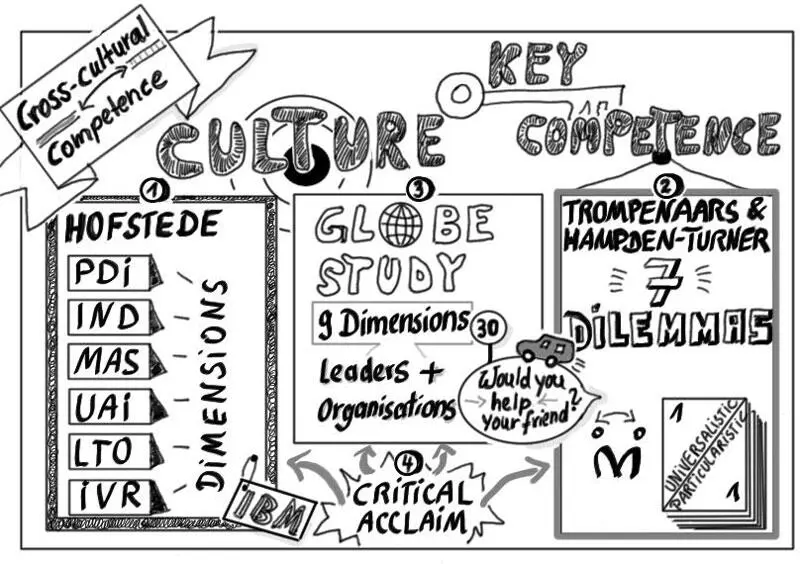 Cross-cultural
Competence
KEY
CULTURE
COMPETENCE
1
HOFSTEDE
PDi
IND
MAS
UAi
LTO
iVR
DIMENSIONS
IBM
3
GLOBE
STUDY
9 Dimensions
Leaders +
Organisations
30
Would you
help
your friend?
2
TROMPENAARS &
HAMPDEN-TURNER
7
DiLEMMAS
1
UNIVERSALISTIC
PARTICULARISTIC
1
4
CRITICAL
ACCLAIM